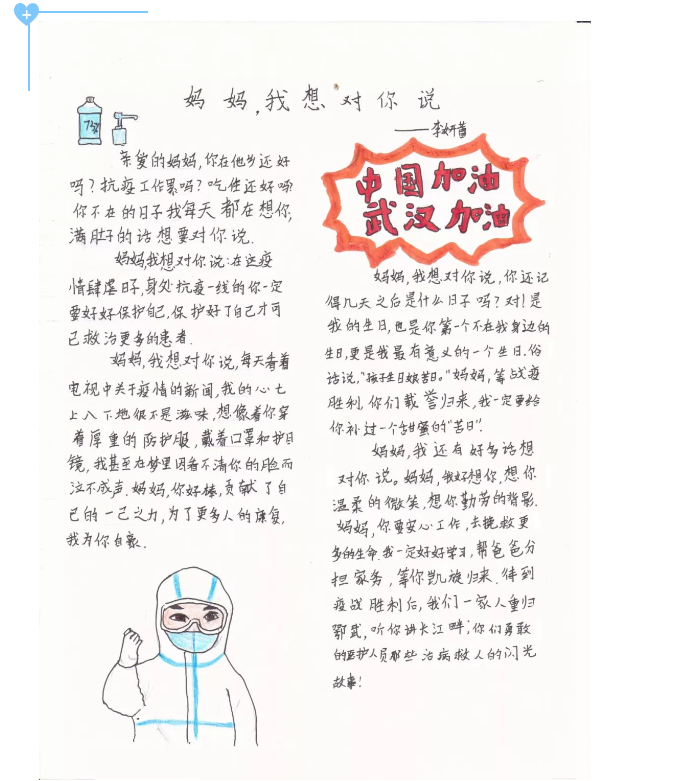 妈妈,我想对你说
——李妍蓄
75%
亲爱的妈妈,你在他乡还好
吗?抗疫工作累吗?吃住还好吗
你不在的日子我每天都在想你,
满肚子的话想要对你说.
妈妈,我想对你说:在这疫
情肆虐日子,身处抗疫一线的你一定
要好好保护自己,保护好了自己才可
已救治更多的患者.
妈妈,我想对你说,每天看着
电视中关于疫情的新闻,我的心七
上八下地很不是滋味,想像着你穿
着厚重的防护服,戴着口罩和护目
镜,我甚至在梦里因看不清你的脸而
泣不成声.妈妈,你好棒,贡献了自
己的一己之力,为了更多人的康复,
我为你自豪.
中国加油
武汉加油
妈妈,我想对你说,你还记
得几天之后是什么日子吗?对!是
我的生日,也是你第一个不在我身边的
生日,更是我最有意义的一个生日.俗
话说,"孩子生日娘苦日."妈妈,等战疫
胜利,你们载誉归来,我一定要给
你补过一个甜蜜的"苦日".
妈妈,我还有好多话想
对你说。妈妈,我好想你,想你
温柔的微笑,想你勤劳的背影.
妈妈,你要安心工作,去挽救更
多的生命.我一定好好学习,帮爸爸分
担家务,等你凯旋归来.待到
疫战胜利后,我们一家人重归
鄂武,听你讲长江畔;你们勇敢
的医护人员那些治病救人的闪光
故事!